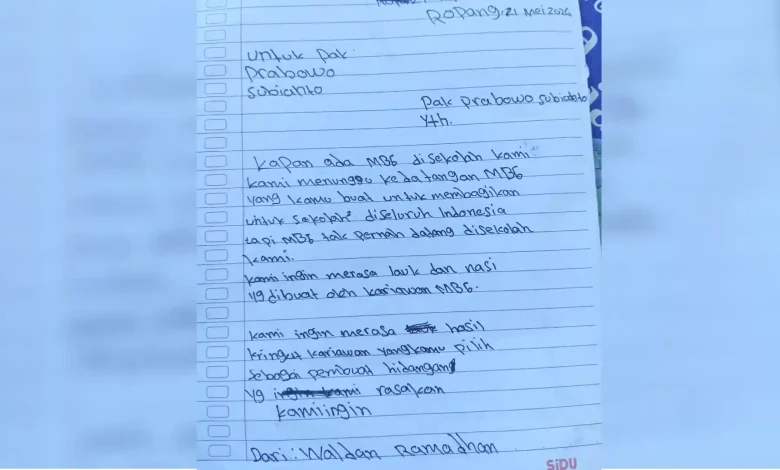 Ropang, 21 Mei 2026
untuk pak
prabowo
subianto
pak prabowo subianto
Yth.
Kapan ada MBG disekolah kami
kami menunggu kedatangan MBG
yang kamu buat untuk membagikan
untuk sekolah² diseluruh Indonesia
tapi MBG tak pernah datang disekolah
kami.
kami ingin merasa lauk dan nasi
yg dibuat oleh kariawan MBG.
kami ingin merasa hasil
kringut kariawan yangkamu pilih
sebagai pembuat hidangan
yg rasakan
kamiingin
Dari: Waldan Ramadhan
SiDU